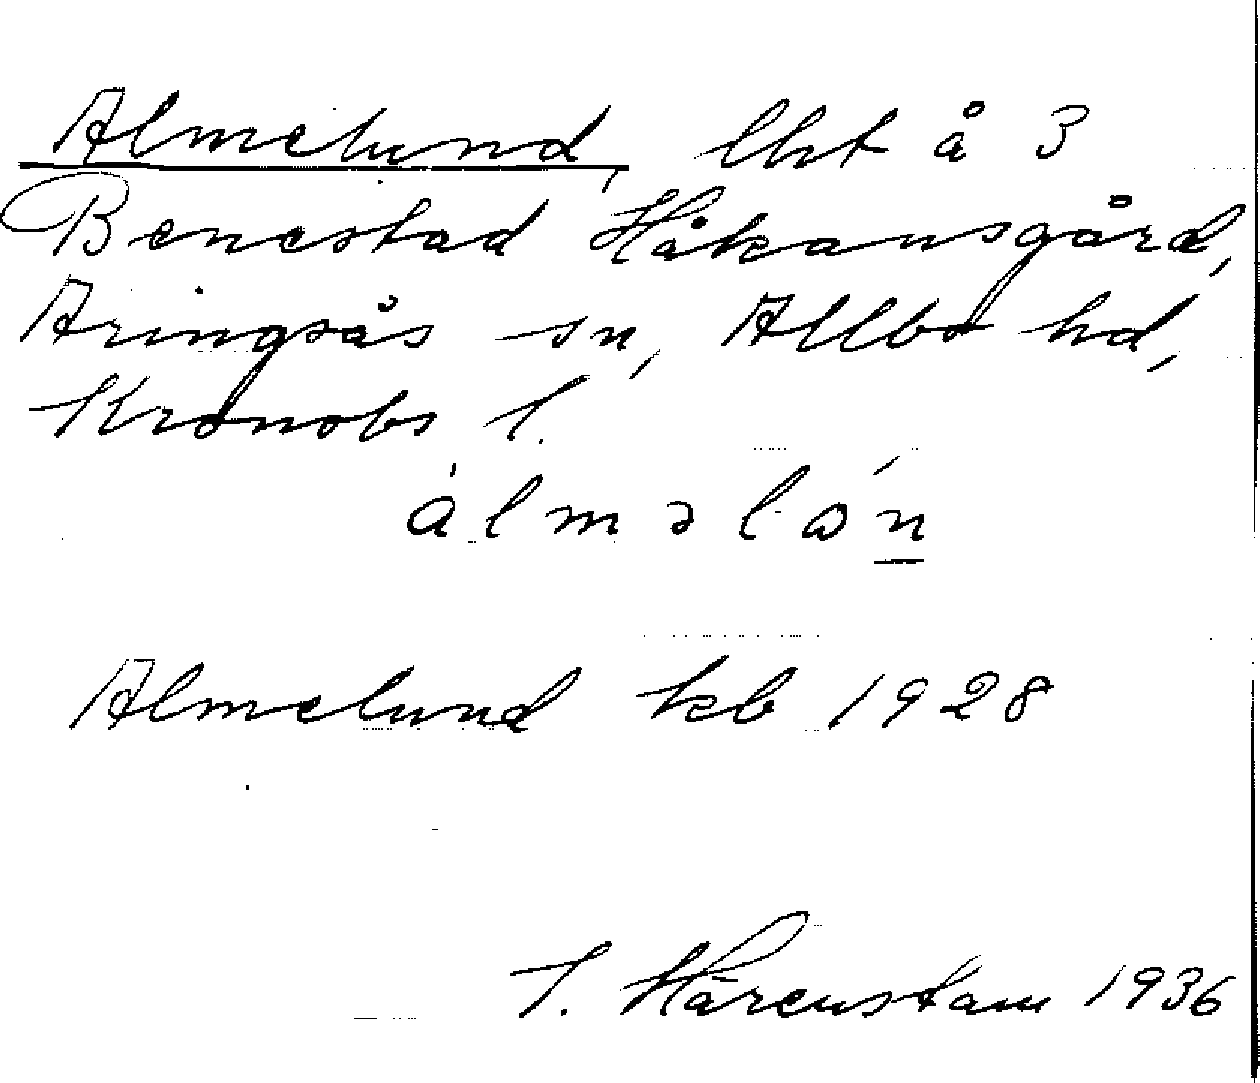 Almelund, lht å 3
Benestad Håkansgård,
Aringsås sn, Allbo hd,
Kronobs l.
Almelund kb 1928
Härenstam 1936